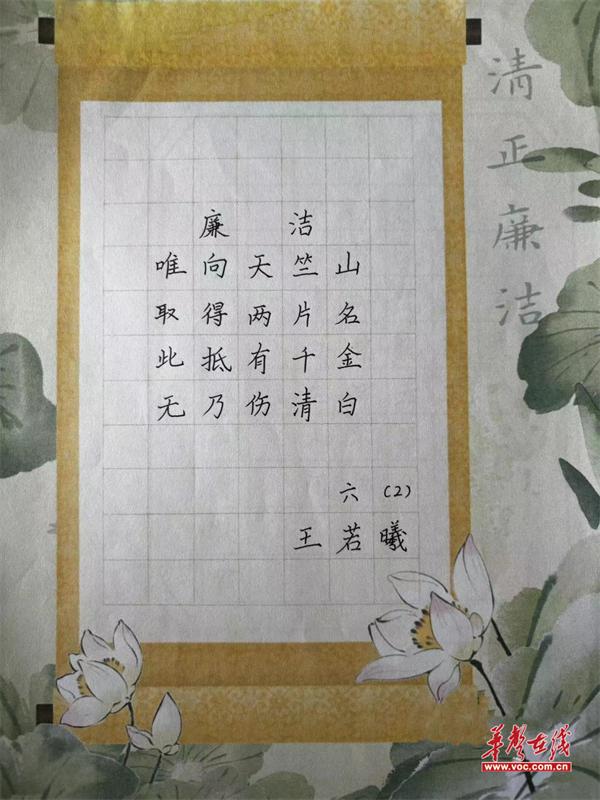 廉洁
唯向天竺山
取得两片名
此抵有千金
无乃伤清白
六(2)
王若曦
清正廉洁
华声在线
www.voc.com.cn